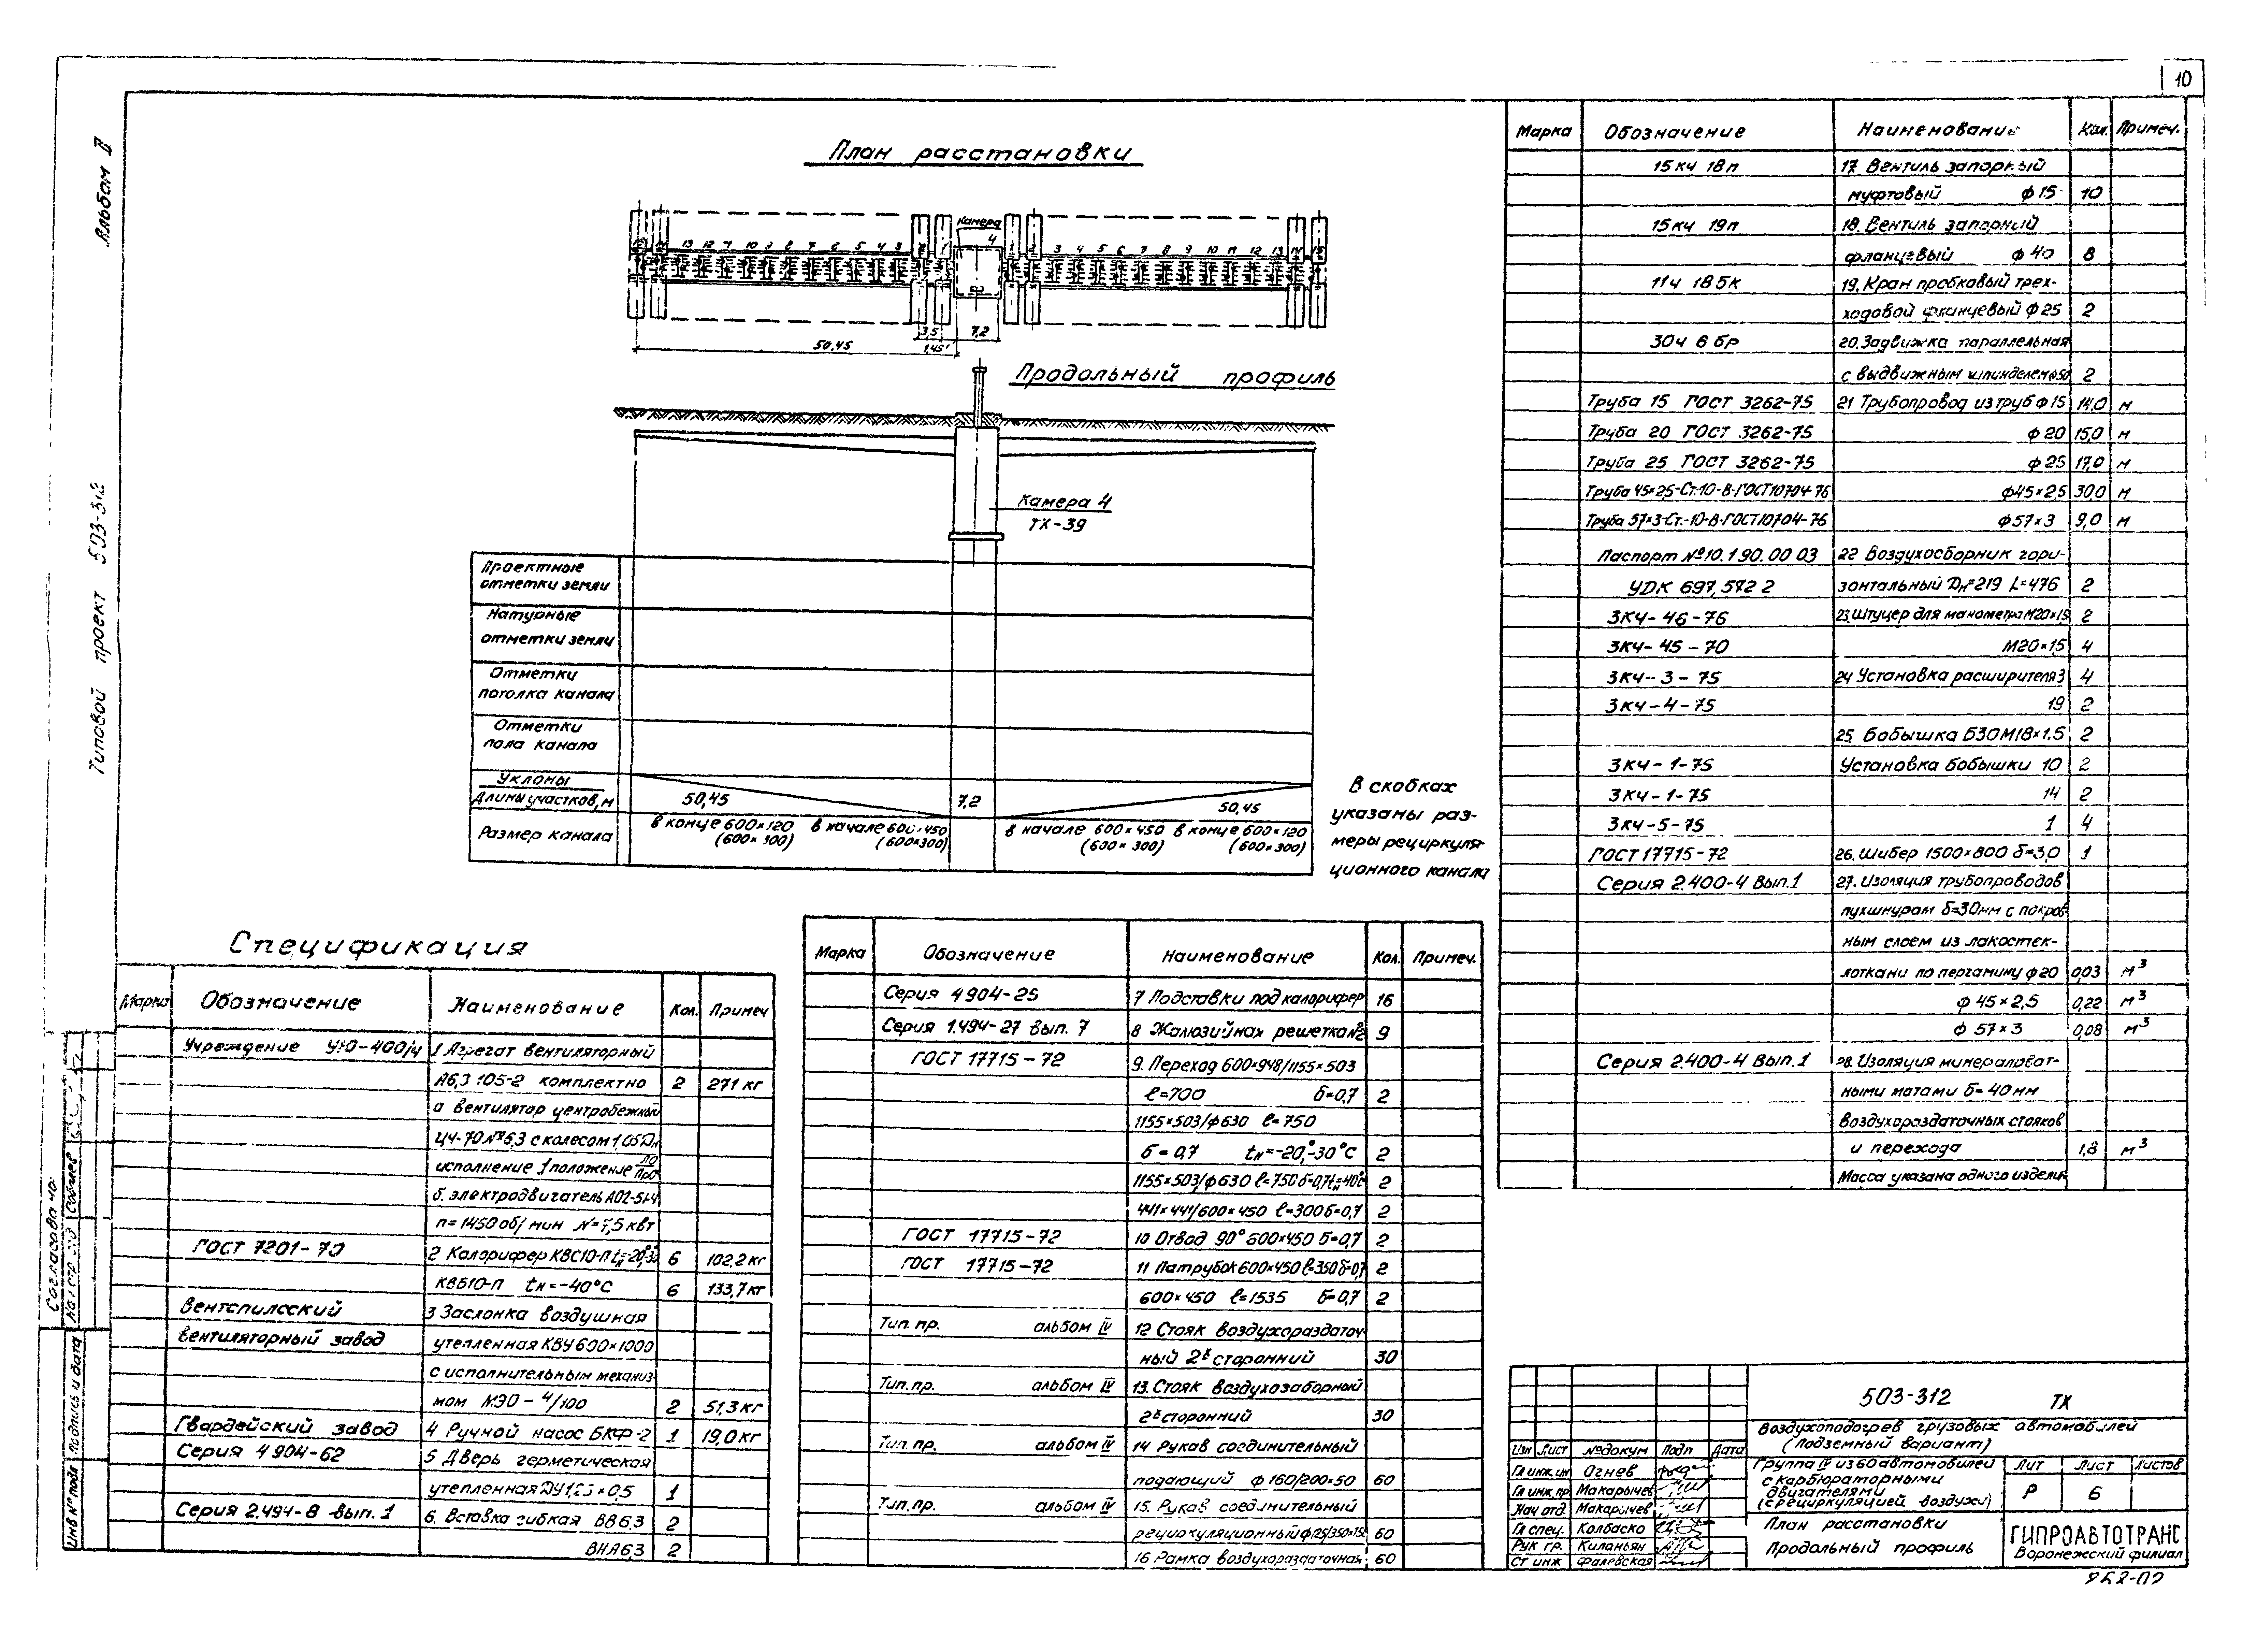 10
Альбом II
Типовой проект 503-312
План расстановки
камера
4
15 14 13 12 11 10 9 8 7 6 5 4 3 2 1
1 2 3 4 5 6 7 8 9 10 11 12 13 14 15
3,5
7,2
50,45
1,45
Продольный профиль
Камера 4
ТХ-39
Проектные
отметки земли
Натурные
отметки земли
Отметки
потолка канала
Отметки
пола канала
Уклоны
Длины участков, м
50,45
7,2
50,45
Размер канала
в конце 600×120 в начале 600×450
(600×300) (600×300)
в начале 600×450 в конце 600×120
(600×300) (600×300)
В скобках
указаны раз-
меры рециркуля-
ционного канала
Спецификация
Марка Обозначение Наименование Кол. Примеч
Учреждение УЮ-400/4 1 Агрегат вентиляторный
А6,3 105-2 комплектно 2 271 кг
а вентилятор центробежный
Ц4-70 №6,3 с колесом 1,05Дн
исполнение 1 положение
б. электродвигатель АО2-51-4
n=1450 об/мин N=7,5 квт
ГОСТ 7201-70 2 Калорифер КВС10-П tн=-20°-30 6 102,2 кг
КВБ10-П tн=-40°С 6 133,7 кг
Вентспилсский 3 Заслонка воздушная
вентиляторный завод утепленная КВУ 600×1000
с исполнительным механиз-
мом МЭО-4/100 2 51,3 кг
Гвардейский завод 4 Ручной насос БКФ-2 1 19,0 кг
Серия 4 904-62 5 Дверь герметическая
утепленная ×0,5 1
Серия 2.494-8 вып. 1 6. Вставка гибкая ВВ6,3 2
ВНА6,3 2
Марка Обозначение Наименование Кол. Примеч.
Серия 4 904-25 7 Подставки под калорифер 16
Серия 1.494-27 вып. 7 8 Жалюзийная решетка №2 9
ГОСТ 17715-72 9. Переход 600×948/1155×503
ℓ=700 б=0,7 2
1155×503/ф630 ℓ=750
б=0,7 tн=-20°,-30°С 2
1155×503/ф630 ℓ=750 б=0,7 tн=-40° 2
441×441/600×450 ℓ=300 б=0,7 2
ГОСТ 17715-72 10 Отвод 90° 600×450 б=0,7 2
ГОСТ 17715-72 11 Патрубок 600×450 ℓ=350 б=0,7 2
600×450 ℓ=1535 б=0,7 2
Тип. пр. альбом IV 12 Стояк воздухораздаточ-
ный 2х сторонний 30
Тип. пр. альбом IV 13. Стояк воздухозаборный
2х сторонний 30
Тип. пр. альбом IV 14 Рукав соединительный
подающий ф160/200×50 60
Тип. пр. альбом IV 15. Рукав соединительный
рециркуляционный 60
16 Рамка воздухораздаточная 60
Марка Обозначение Наименование Кол. Примеч.
15кч 18п 17. Вентиль запорный
муфтовый ф15 10
15кч 19п 18. Вентиль запорный
фланцевый ф40 8
11ч 18бк 19. Кран пробковый трех-
ходовой фланцевый ф25 2
30ч 6 бр 20. Задвижка параллельная
с выдвижным шпинделем ф50 2
Труба 15 ГОСТ 3262-75 21 Трубопровод из труб ф15 14,0 м
Труба 20 ГОСТ 3262-75 ф20 15,0 м
Труба 25 ГОСТ 3262-75 ф25 17,0 м
Труба 45×2,5-Ст.10-В-ГОСТ10704-76 ф45×2,5 30,0 м
Труба 57×3-Ст.-10-В-ГОСТ10704-76 ф57×3 9,0 м
Паспорт №10.1.90.00 03 22 Воздухосборник гори-
УДК 697.572 2 зонтальный Дн=219 L=476 2
ЗКЧ-46-76 23. Штуцер для манометра М20×1,5 2
ЗКЧ-45-70 М20×1,5 4
ЗКЧ-3-75 24 Установка расширителя 3 4
ЗКЧ-4-75 19 2
25. Бобышка Б30 М18×1.5 2
ЗКЧ-1-75 Установка бобышки 10 2
ЗКЧ-1-75 14 2
ЗКЧ-5-75 1 4
ГОСТ 17715-72 26. Шибер 1500×800 б=3,0 1
Серия 2.400-4 Вып.1 27. Изоляция трубопроводов
пухшнурам б=30мм с покров-
ным слоем из лакостек-
лоткани по пергамину ф20 0,03 м³
ф45×2,5 0,22 м³
ф57×3 0,08 м³
Серия 2.400-4 Вып.1 28. Изоляция минераловат-
ными матами б=40мм
воздухораздаточных стояков
и перехода 1,8 м³
Масса указана одного изделия
503-312 ТХ
Воздухоподогрев грузовых автомобилей
(Подземный вариант)
Изм Лист №докум Подп Дата
Гл инж ин Огнев
Гл инж пр Макарычев
Нач отд. Макарычев
Гл спец. Колбаско
Рук гр. Киланьян
Ст инж Фалевская
Группа IV из 60 автомобилей
с карбюраторными
двигателями
(с рециркуляцией воздуха)
Лит Лист Листов
Р 6
План расстановки
Продольный профиль
ГИПРОАВТОТРАНС
Воронежский филиал
Согласовано:
Инв № подл Подпись и дата